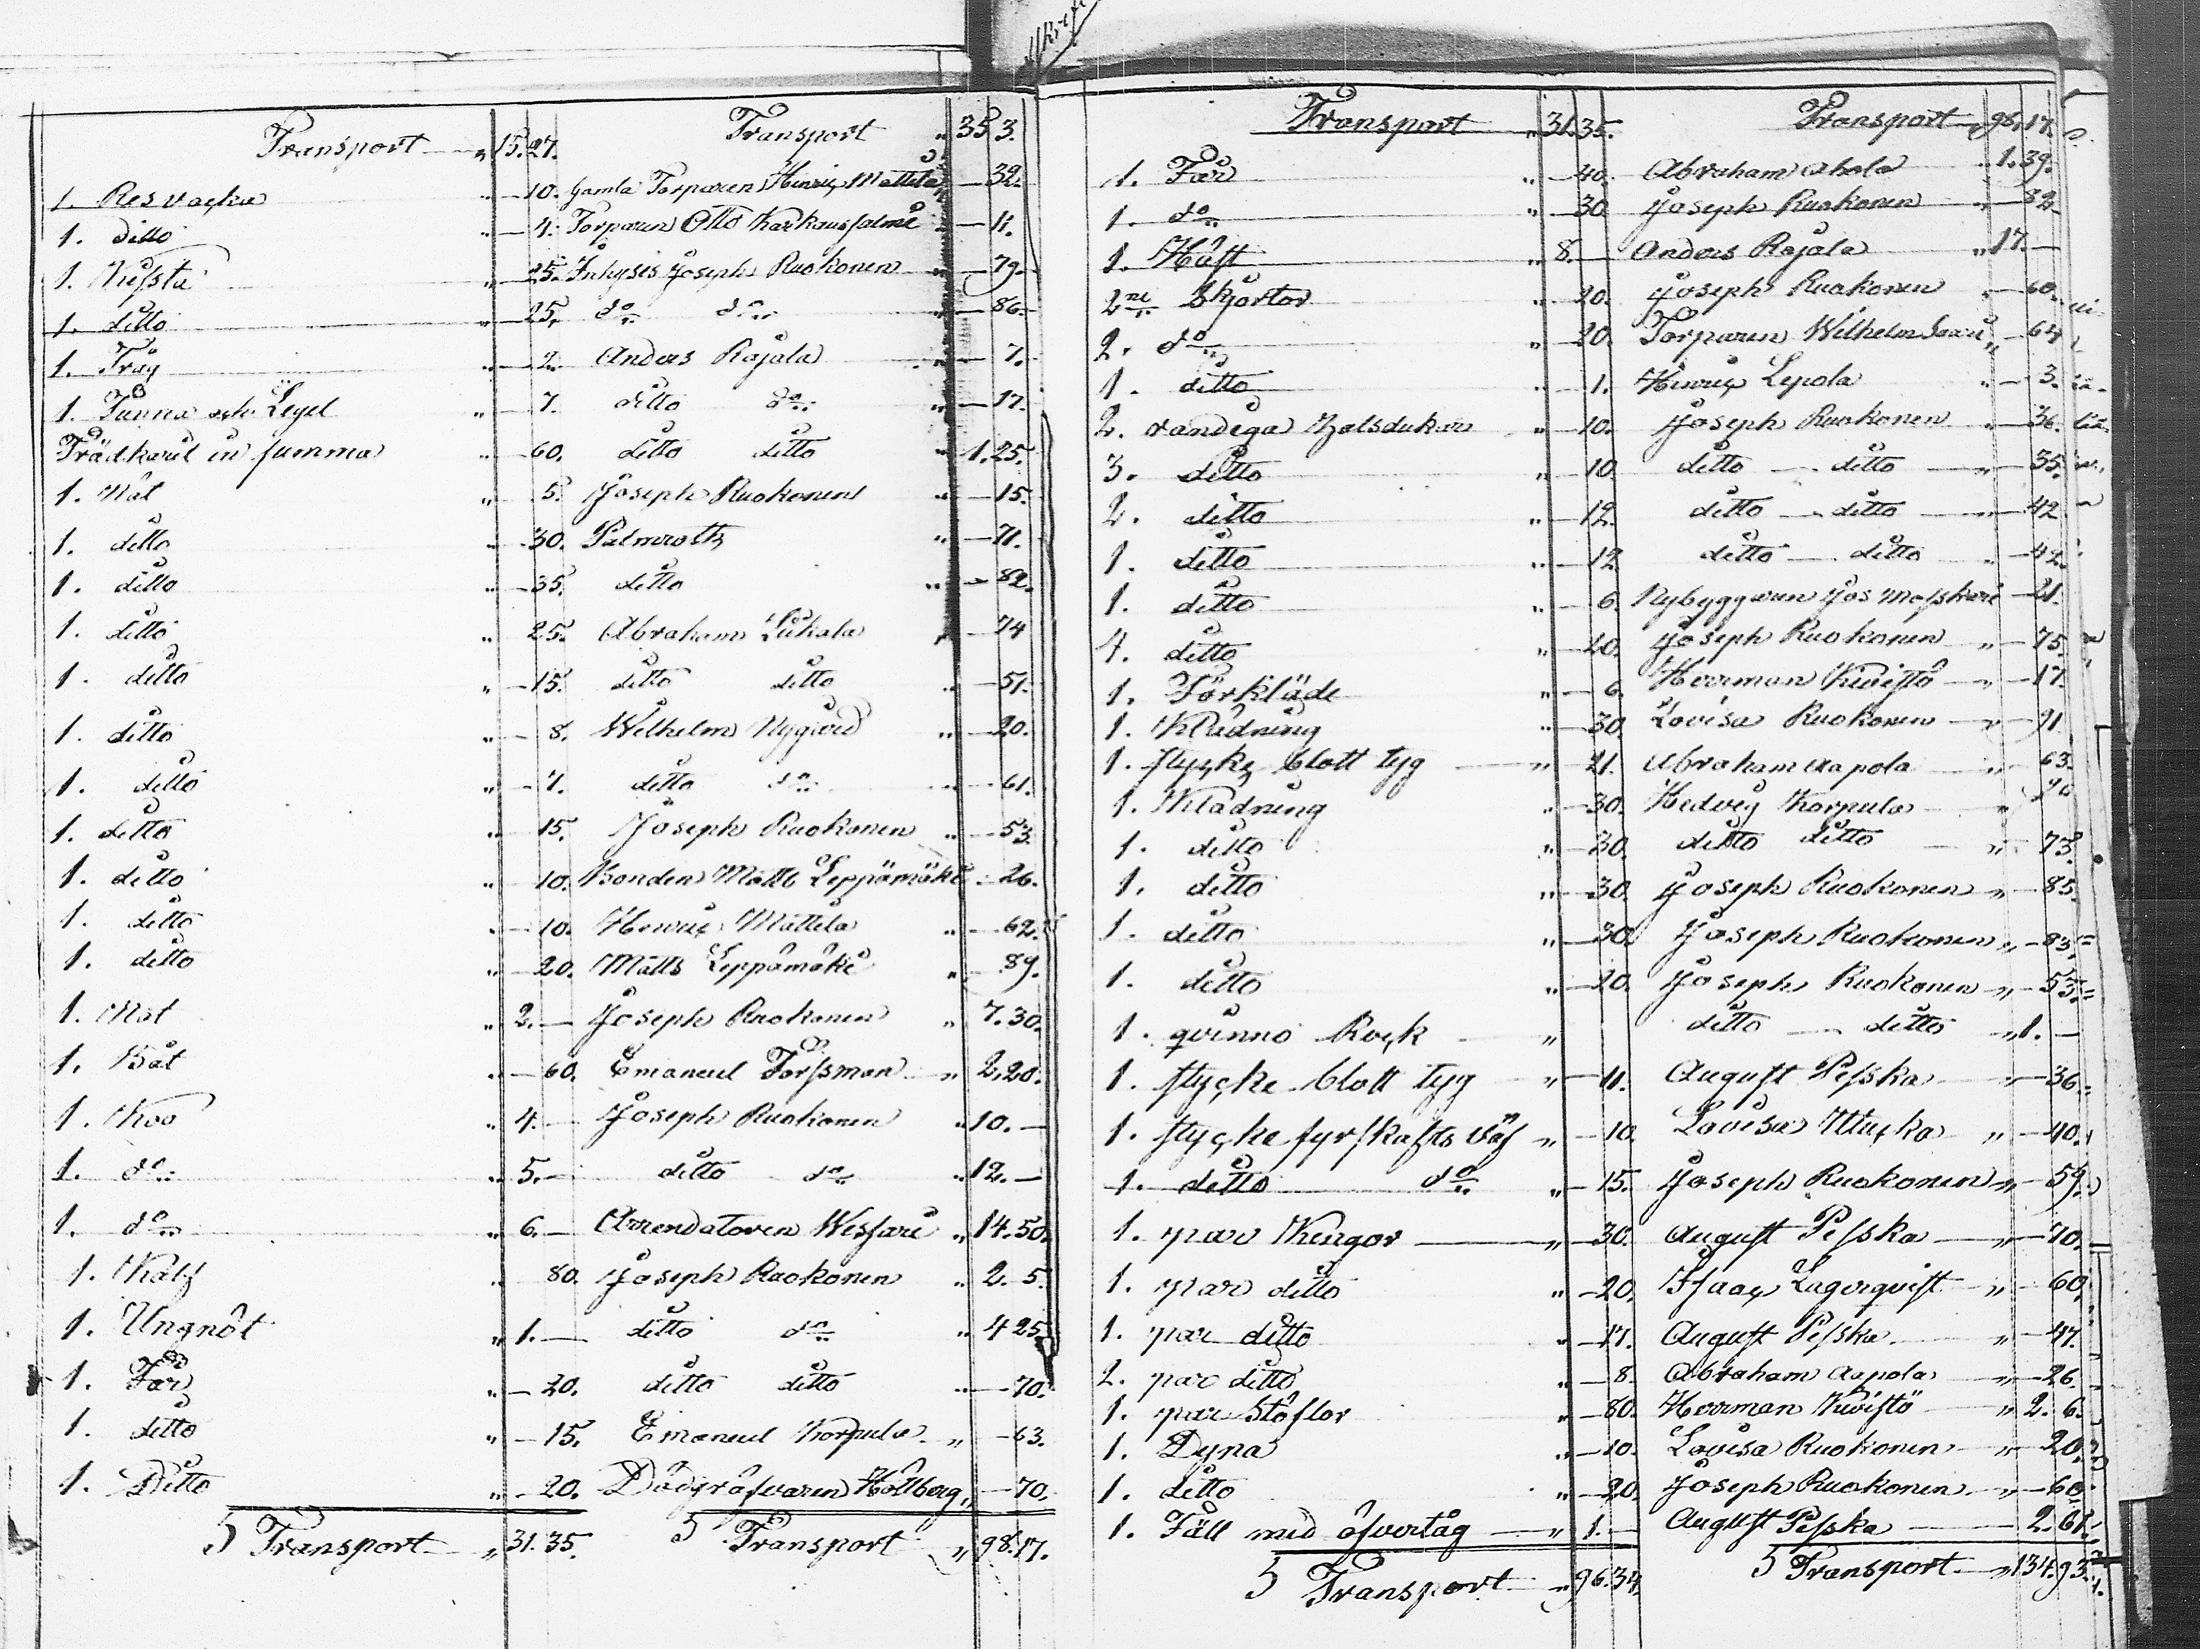 Transport „ 15. 27. Transport „ 35 3.
1. Resvacka „ — 10. Gamla Torparen Hinric Mattila „ — 32.
1. ditto „ — 4. Torparen Otto Karkaussalmi „ — 11.
1. „ — 25. Inhyses Joseph Ruokonen „ — 79.
1. ditto „ — 25. do do „ — 86.
1. Tråg „ — 2. Anders Rajala „ — 7.
1. Tunna och Legel „ — 7. ditto do „ — 17.
Trädkäril in summa „ — 60. ditto ditto „ 1. 25.
1. Nät „ — 5. Joseph Ruokonen „ — 15.
1. ditto „ — 30. Palmroth „ — 71.
1. ditto „ — 35. ditto „ — 82.
1. ditto „ — 25. Abraham „ — 74
1. ditto „ — 15. ditto ditto „ — 51.
1. ditto „ — 8. Wilhelm Nygård „ — 20.
1. ditto „ — 7. ditto do „ — 61.
1. ditto „ — 15. Joseph Ruokonen „ — 53.
1. ditto „ — 10. Bonden Matts Leppämäki „ — 26.
1. ditto „ — 10. Henric Mattila „ — 62.
1. ditto „ — 20. Matts Leppämäki „ — 89.
1. Not „ 2. — Joseph Ruokonen „ 7. 30.
1. Båt „ — 60. Emaneul Forssman „ 2. 20.
1. Koo „ 4. — Joseph Ruokonen „ 10. —
1. do „ 5. — ditto do „ 12. —
1. do „ 6. — Arrendatoren Wessari „ 14. 50.
1. Kalf „ 80. Joseph Ruokonen „ 2. 5.
1. Ungnöt „ 1. — ditto do „ 4 25.
1. Får „ — 20. ditto ditto „ — 70.
1. ditto „ — 15. Emaneul Korpula „ — 63.
1. Ditto „ — 20. Dödgräfvaren Hollberg „ — 70.
Transport „ 31. 35. Transport „ 98. 17.
Transport „ 31. 35. Transport „ 98. 17.
1. Får „ — 40. Abraham Ahola „ 1. 39.
1. do „ — 30. Joseph Ruokonen „ — 32
1. Häst „ 8. — Anders Rajala „ 17. —
2ne Skjortor „ — 20. Joseph Ruokonen „ — 60.
2. do „ — 20. Torparen Wilhelm Saari „ — 64
1. ditto „ — 1. Hinric Lepola „ — 3.
2. randiga Halsdukar „ — 10. Joseph Ruokonen „ — 36.
3. ditto „ — 10. ditto — ditto „ — 35.
2. ditto „ — 12. ditto — ditto „ — 42.
1. ditto „ — 12. ditto — ditto „ — 42.
1. ditto „ — 6. Nybyggaren Jos — 21.
4. ditto „ — 20. Joseph Ruokonen „ — 75.
1. Förkläde „ — 6. Herrman Kivistö „ — 17.
1. Klädning „ — 30. Lovisa Ruokonen „ — 91.
1. stycke blott tyg „ — 21. Abraham Aapola „ — 63.
1. Klädning „ — 30. Hedvig Korpula „
1. ditto „ — 30. ditto ditto „ — 73.
1. ditto „ — 30. Joseph Ruokonen „ — 85.
1. ditto „ — 30. Joseph Ruokonen „ — 83.
1. ditto „ — 20. Joseph Ruokonen „ — 55.
1. qvinno Rock „ ditto — ditto „ 1. —
1. stycke blott tyg „ — 11. August Pesska „ — 36.
1. stycke fyrskafts väf „ — 10. Lovisa „ — 40.
1. ditto do „ — 15. Joseph Ruokonen „ — 59.
1. par Kengor „ — 30. August Pesska „ — 70.
1. par ditto „ — 20. Isaac Lagerqvist „ — 60.
1. par ditto „ — 17. August Pesska „ — 47.
2. par ditto „ — 8. Abraham Aapola „ — 26.
1. par Stöflor „ — 80. Herrman Kivistö „ 2. 6.
1. Dyna „ — 10. Lovisa Ruokonen „ — 20.
1. ditto „ — 20. Joseph Ruokonen „ — 60.
1. Fäll med öfvertåg „ 1. — August Pesska — 2. 61.
Transport „ 96. 34. Transport „ 134. 93.